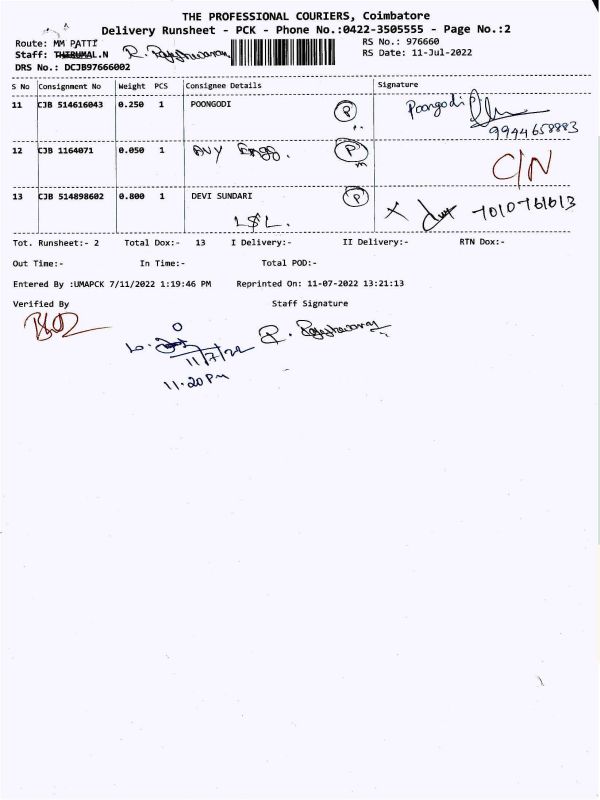 THE PROFESSIONAL COURIERS, Coimbatore
Delivery Runsheet - PCK - Phone No.:0422-3505555 - Page No.:2
Route: MM PATTI
RS No.: 976660
Staff: THIRUMAL.N R. Rajeshwaran
RS Date: 11-Jul-2022
DRS No.: DCJB97666002
S No Consignment No Weight PCS Consignee Details Signature
11 CJB 514616043 0.250 1 POONGODI P Poongodi
9944658883
12 CJB 1164071 0.050 1 AVY Engg. P C/N
13 CJB 514898602 0.800 1 DEVI SUNDARI P X 7010761613
LSL.
Tot. Runsheet:- 2 Total Dox:- 13 I Delivery:- II Delivery:- RTN Dox:-
Out Time:- In Time:- Total POD:-
Entered By :UMAPCK 7/11/2022 1:19:46 PM Reprinted On: 11-07-2022 13:21:13
Verified By Staff Signature
R. Rajeshwaran
11/7/22
11.20 Pm